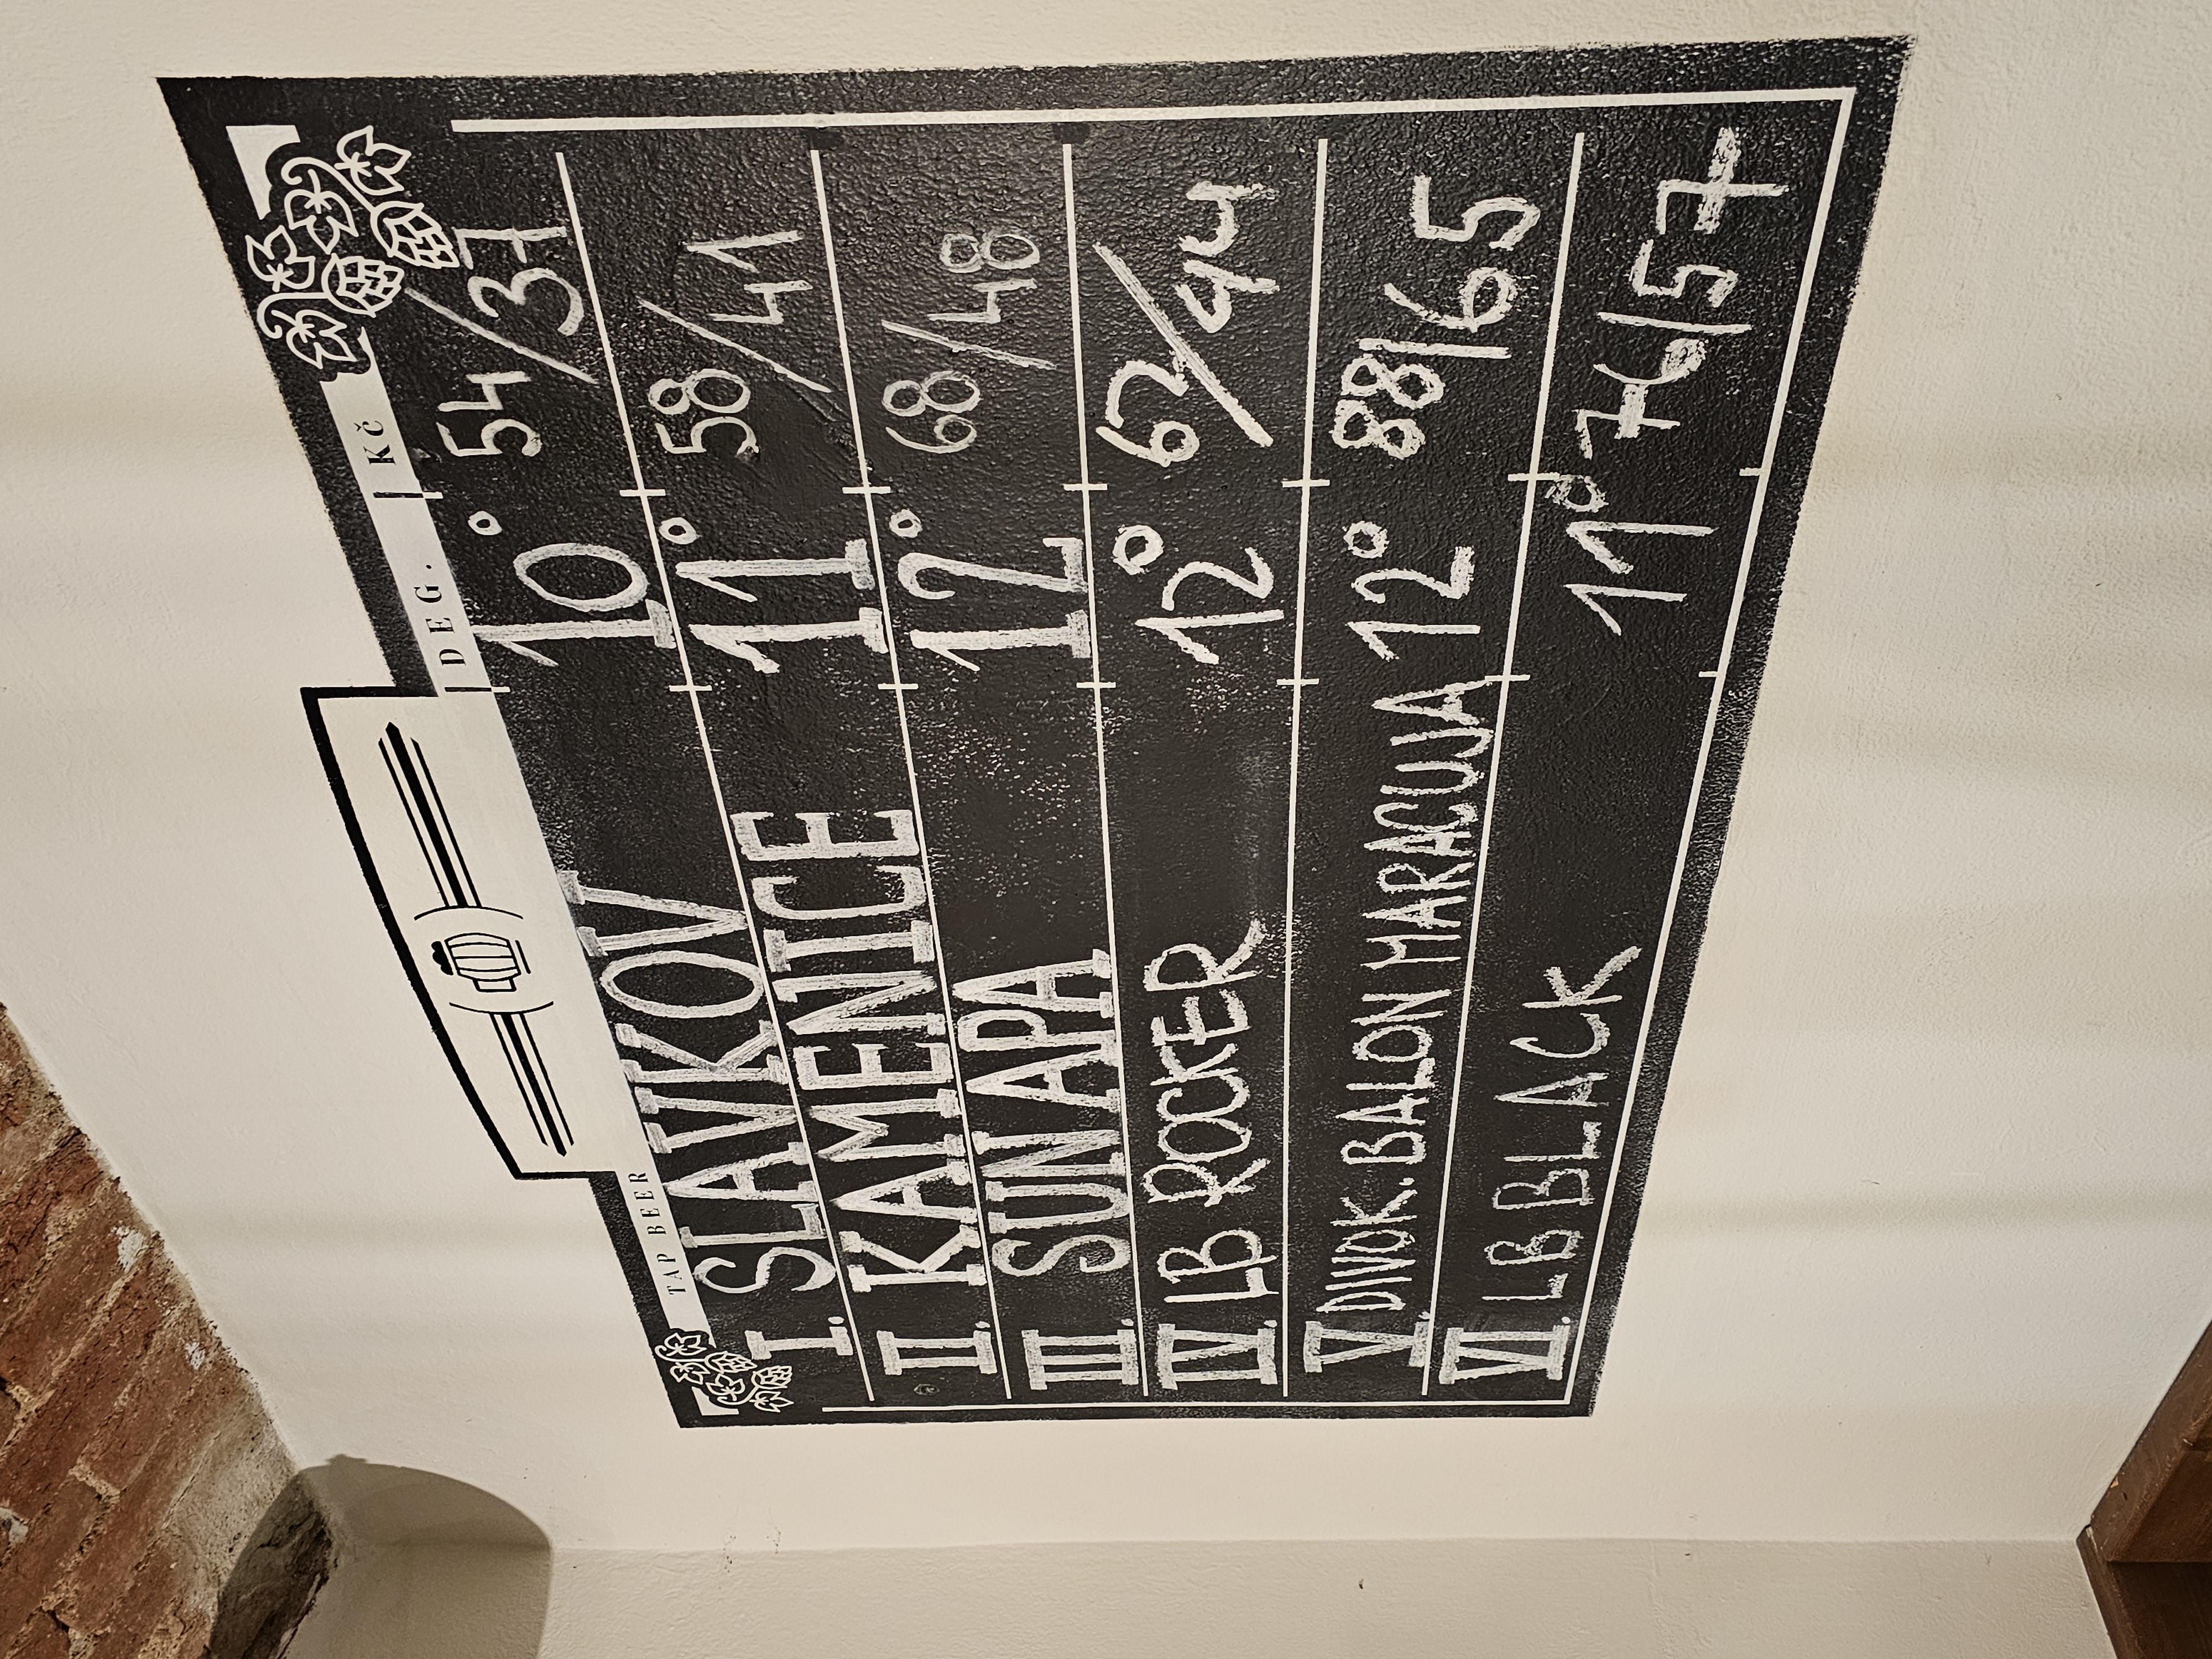 TAP BEER DEG. Kč
I. SLAVKOV 10° 54/37
II. KAMENICE 11° 58/41
III. SUN APA 12° 68/48
IV. LB ROCKER 12° 62/44
V. DIVOK. BALON MARACUJA 12° 88/65
VI. LB BLACK 11° 76/57